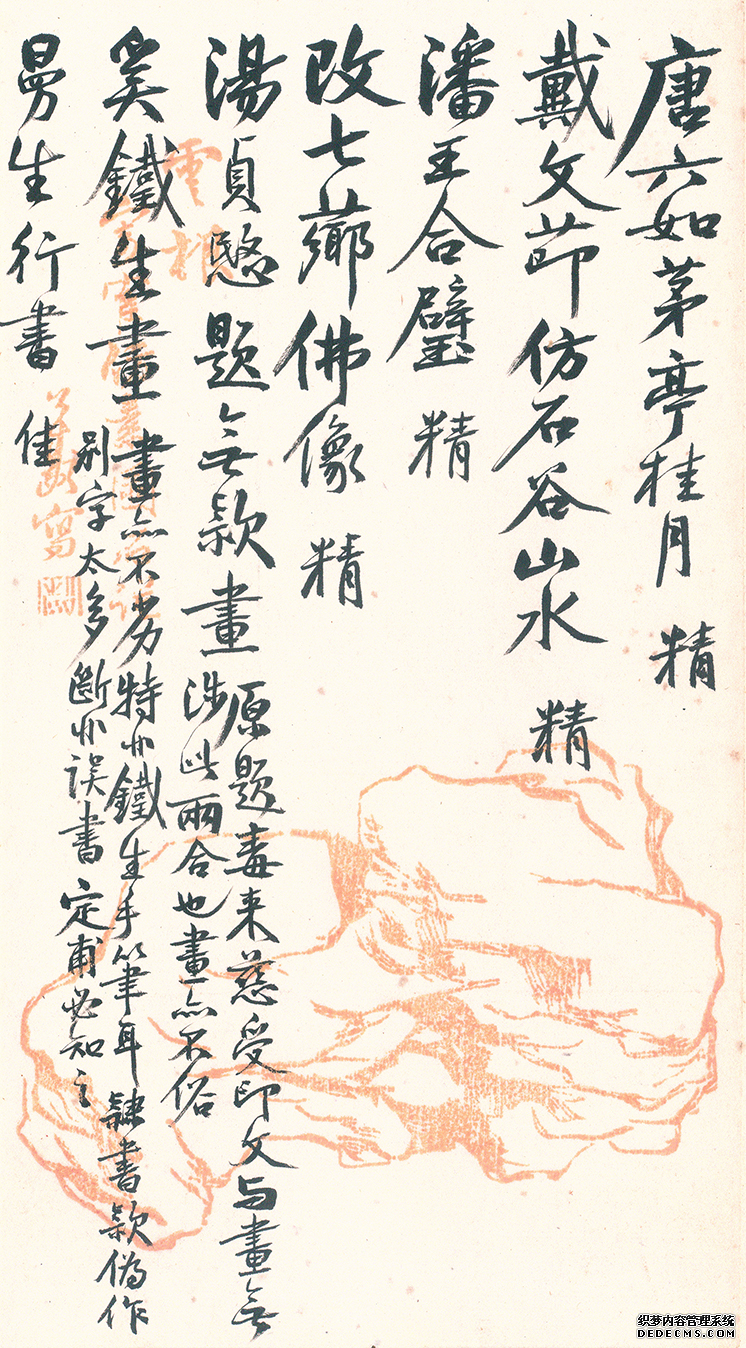 唐六如茅亭桂月 精
戴文莭仿石谷山水 精
潘王合璧 精
改七薌佛像 精
湯貞愍題無款畫
原題毒来慈受印文与畫無
涉此兩合也畫亦不俗
奚鐵生畫
畫亦不劣特非鐵生手筆耳 隸書款偽作
别字太多斷非誤書 定甫必知之
曼生行書 佳
雲根
织梦内容管理系统
DEDECMS.COM